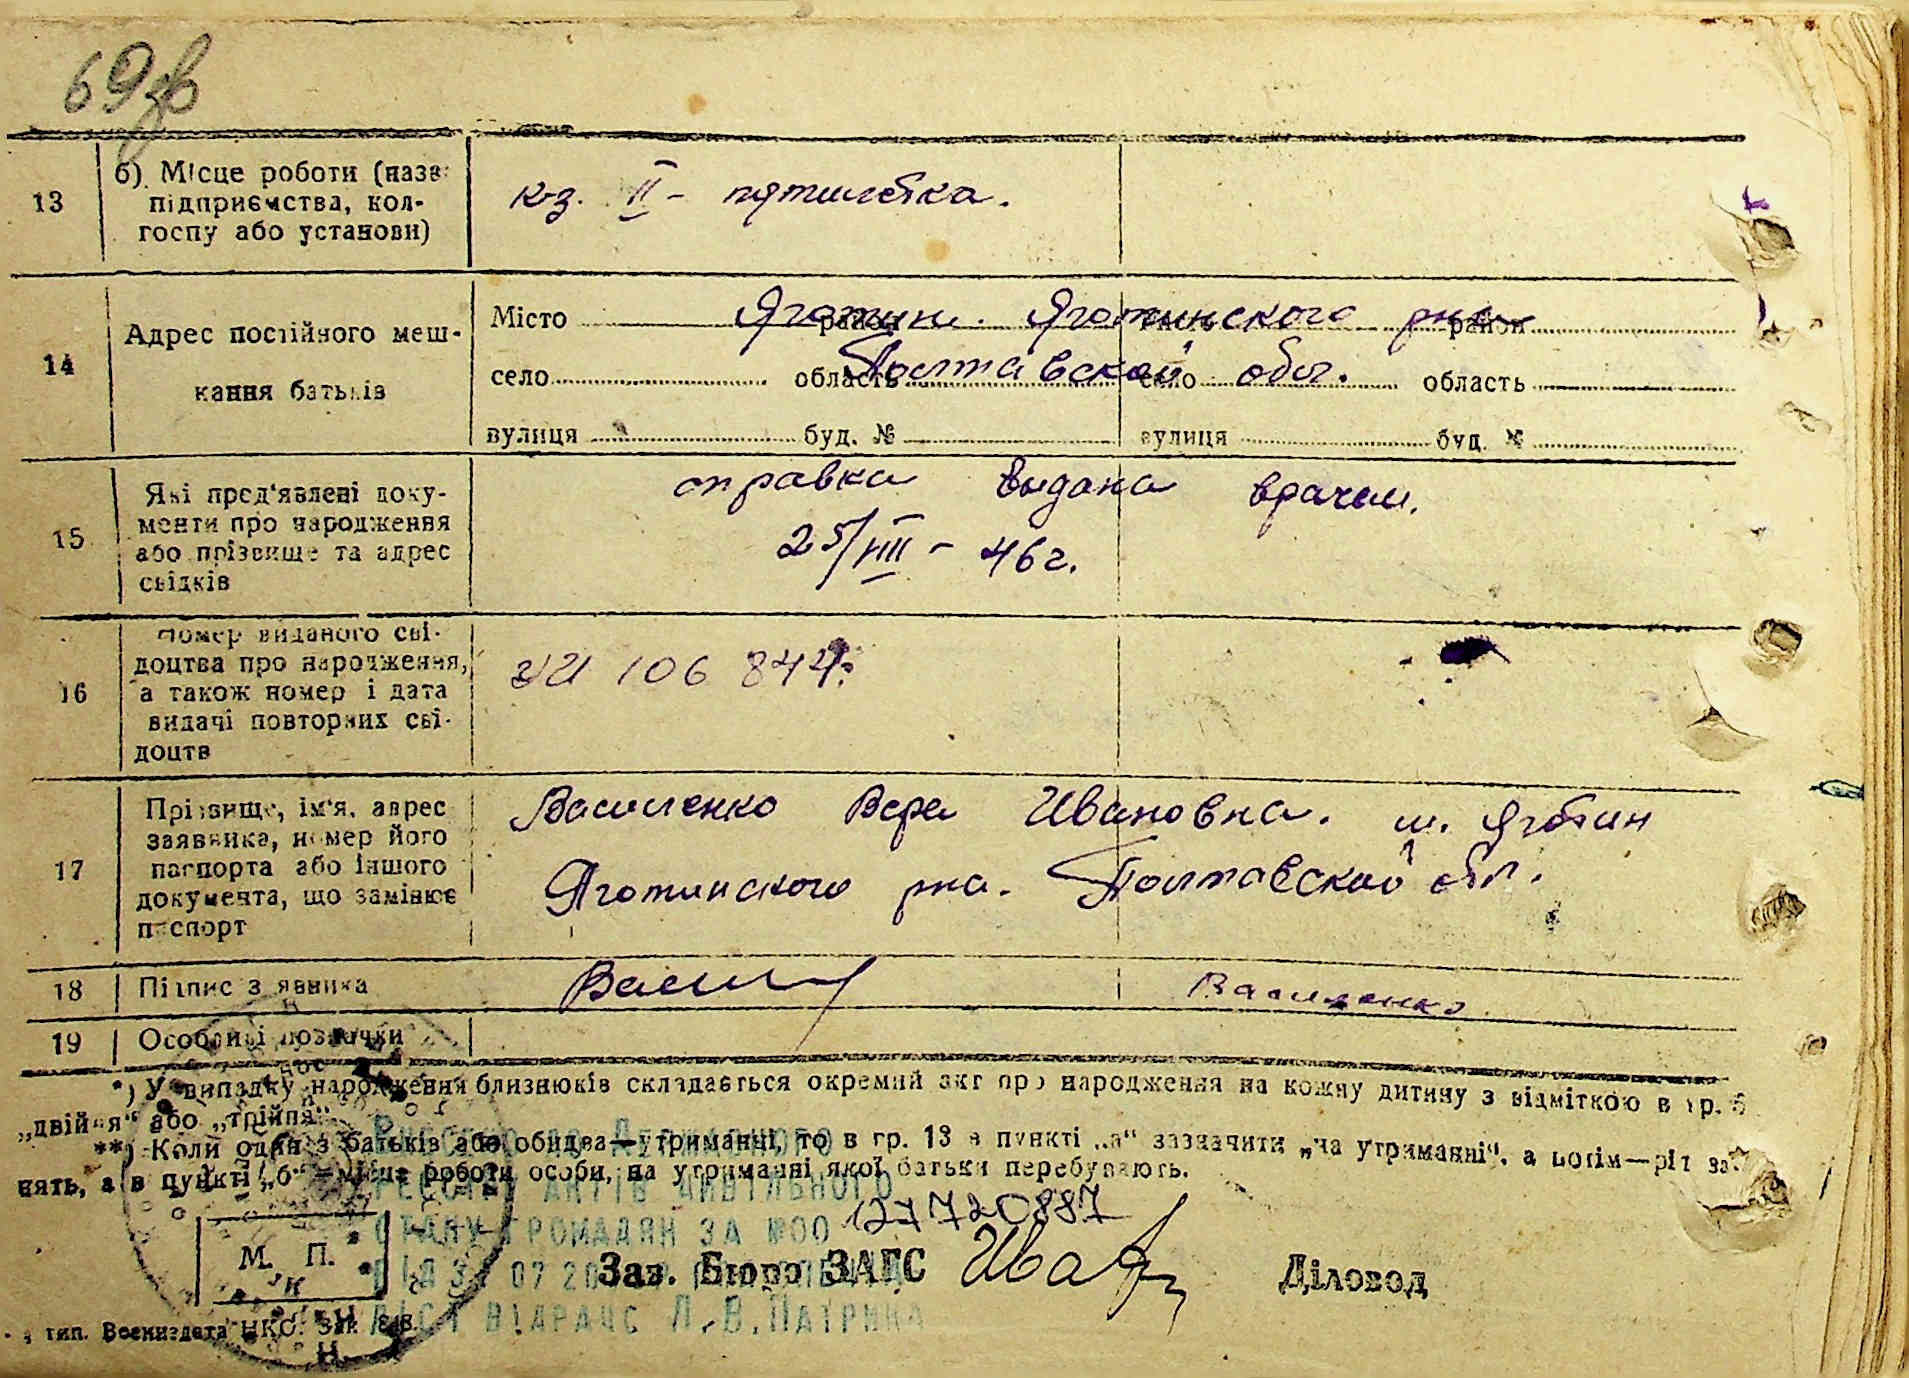 69зв
13 б) Місце роботи (назв
підприємства, кол-
госпу або установи)
к-з. II - пятилетка.
14 Адрес постійного меш-
кання батьків
Місто район район
Яготин. Яготинского р-на
село область село область
Полтавской обл.
вулиця буд. № вулиця буд. №
15 Які пред'явлені доку-
менти про народження
або прізвище та адрес
свідків
справка выдана врачем.
25/VIII - 46 г.
16 Номер виданого сві-
доцтва про народження,
а також номер і дата
видачі повторних сві-
доцтв
106 844
17 Прізвище, ім'я, адрес
заявника, номер його
паспорта або іншого
документа, що замінює
паспорт
Василенко Вера Ивановна. м. Яготин
Яготинского р-на. Полтавской обл.
18 Підпис заявника
Васил Василенко
19 Особливі позначки
*) У випадку народження близнюків складається окремий акт про народження на кожну дитину з відміткою в гр. 6
„двійня“ або „трійня“.
**) Коли один з батьків або обидва—утриманці, то в гр. 13 в пункті „а“ зазначити „на утриманні“, а потім—рід за-
нять, а в пункті „б“—місце роботи особи, на утриманні якої батьки перебувають.
Внесено до Державного
реєстру актів цивільного
стану громадян за №00 127720887
М. П.
Зав. Бюро ЗАГС Діловод
ВІДРАЦС Л.В.Патрина
тип. Воениздата НКО. Зак